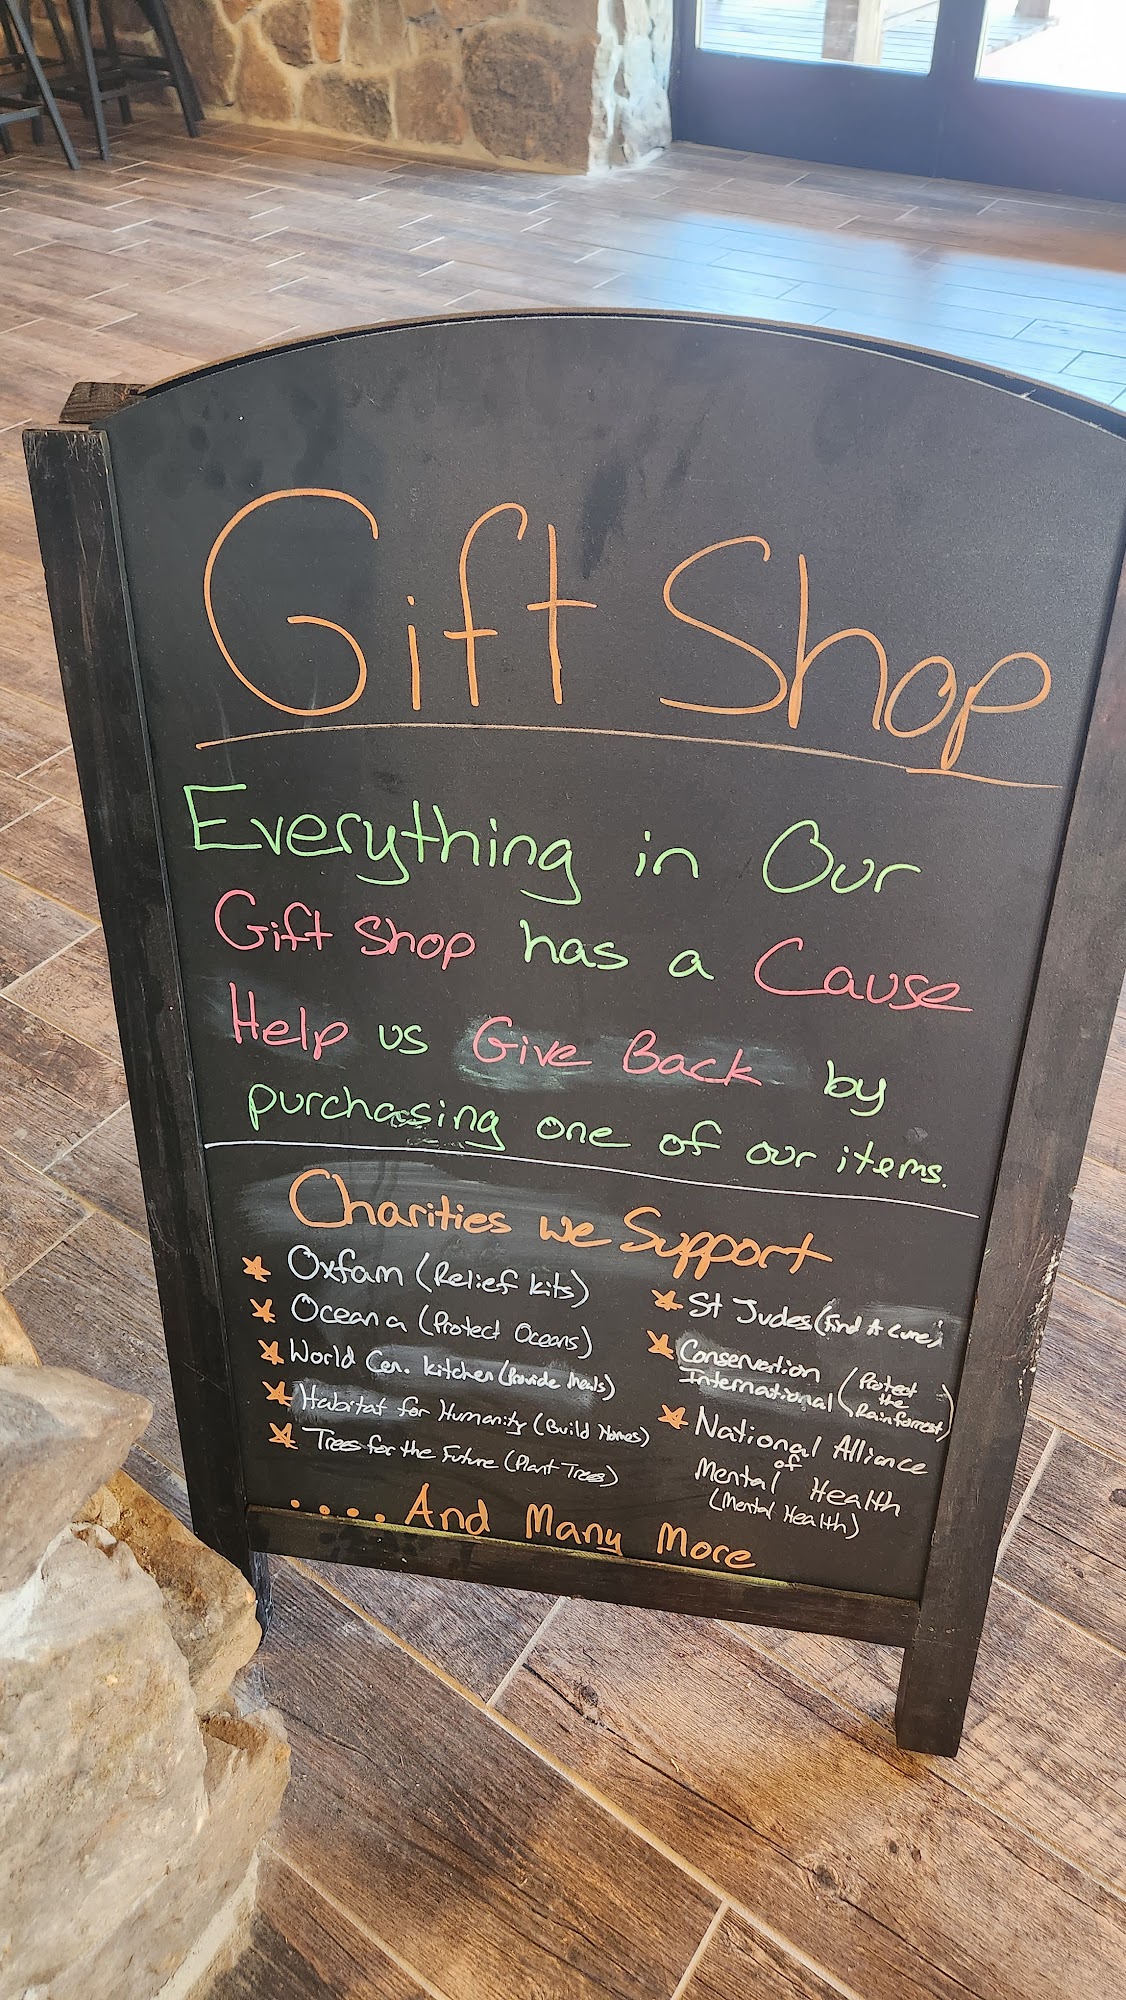 Gift Shop
Everything in Our
Gift Shop has a Cause
Help us Give Back by
purchasing one of our items.
Charities we Support
Oxfam (Relief kits)
Oceana (Protect Oceans)
World Cen. kitchen (Provide Meals)
Habitat for Humanity (Build Homes)
Trees for the Future (Plant Trees)
St Judes (Find A Cure)
Conservation
International (Protect
the
Rainforrest)
National Alliance
of
Mental Health
(Mental Health)
....And Many More